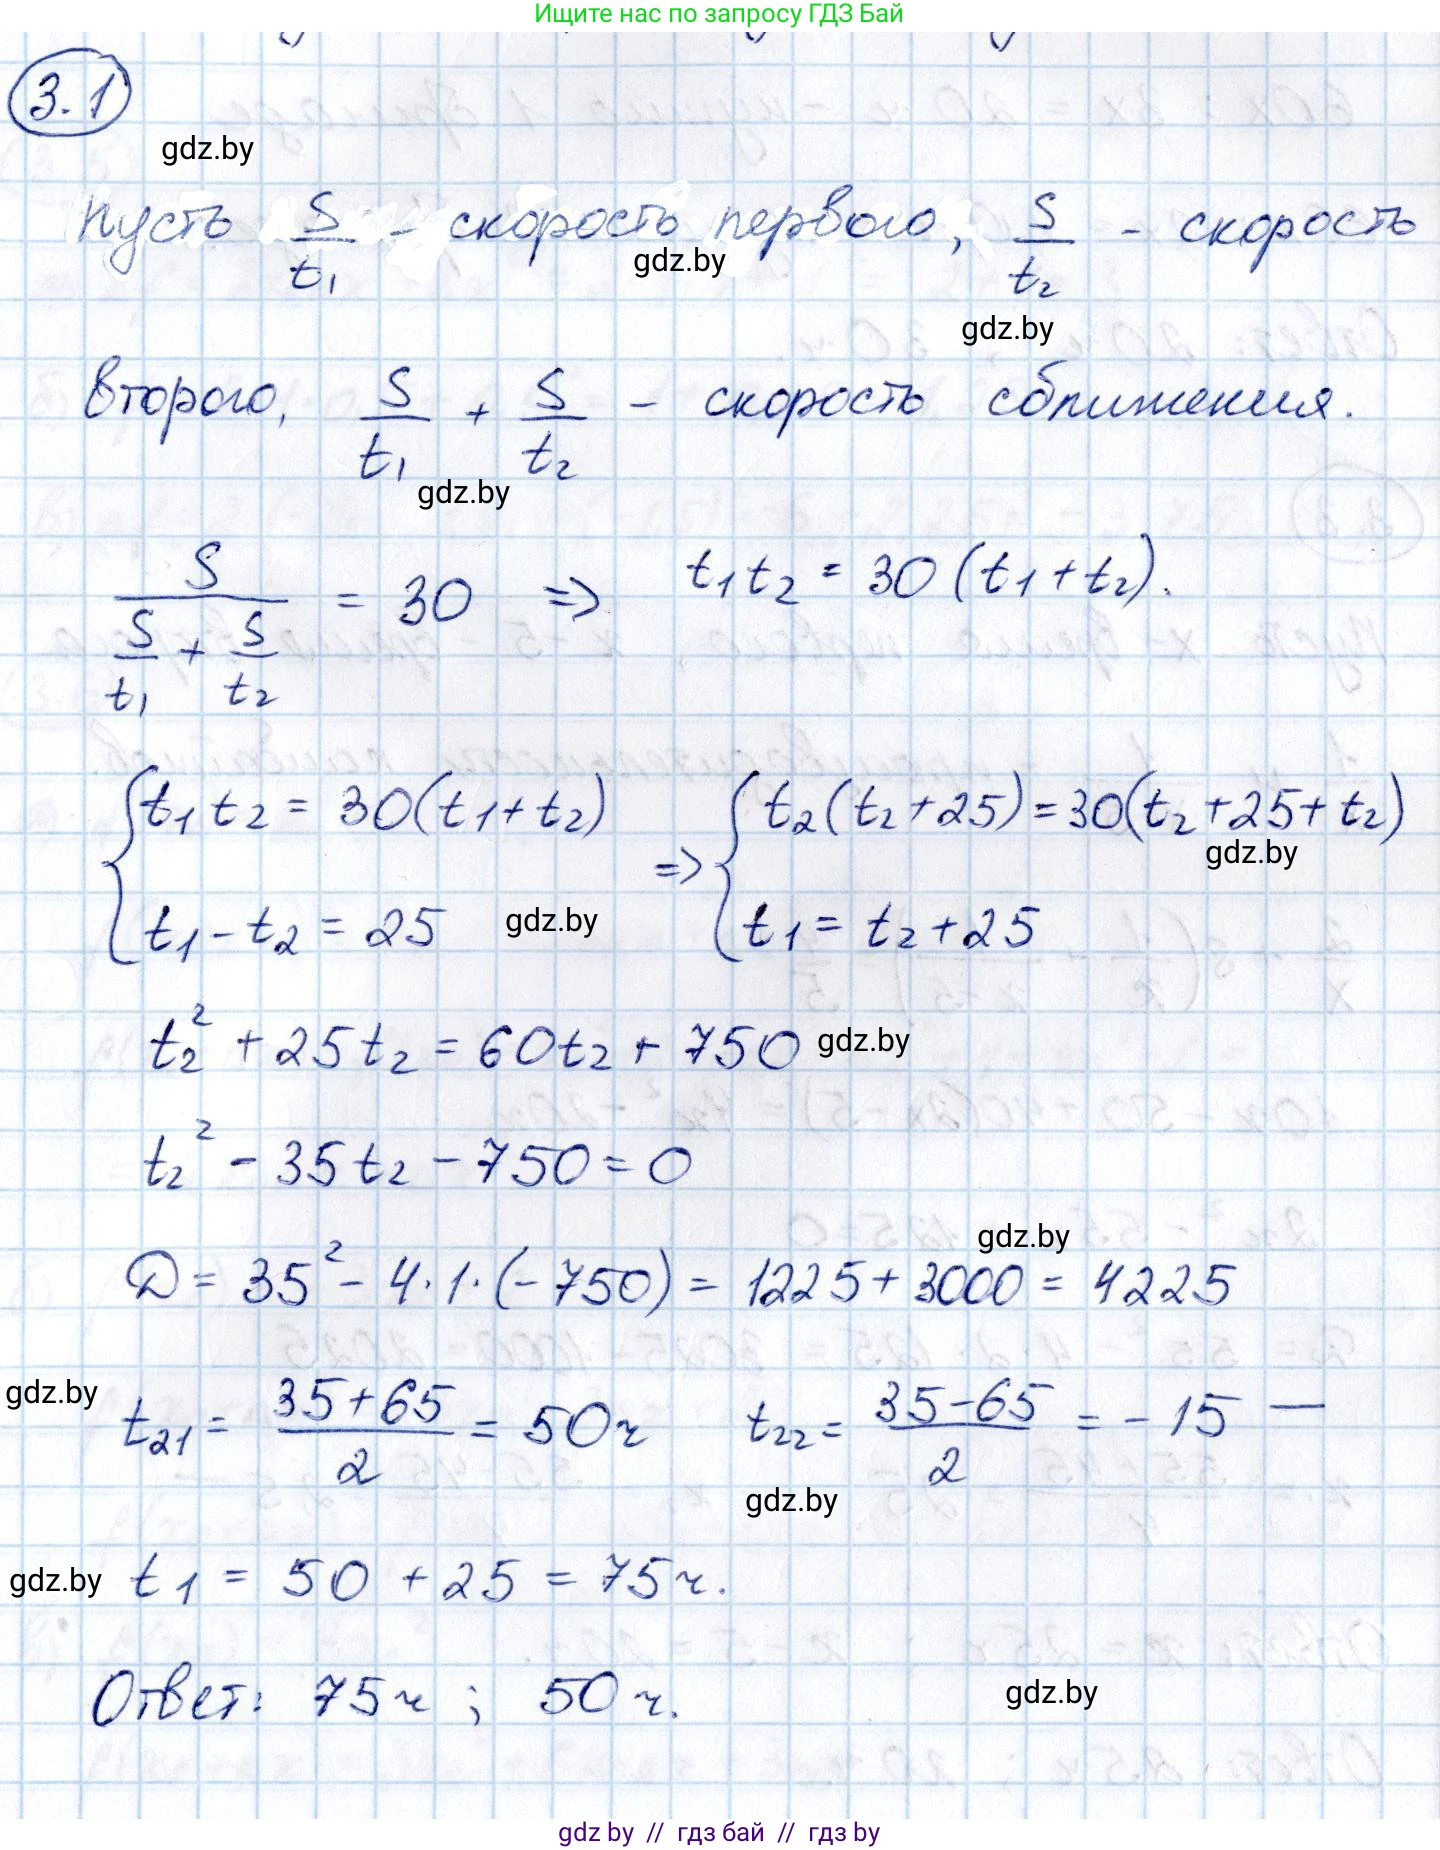 Ищите нас по запросу ГДЗ Бай
3.1
gdz.by
Пусть S/t₁ - скорость первого, S/t₂ - скорость
gdz.by
gdz.by
второго, S/t₁ + S/t₂ - скорость сближения.
gdz.by
S/(S/t₁ + S/t₂) = 30 => t₁t₂ = 30(t₁+t₂).
{t₁t₂ = 30(t₁+t₂) => {t₂(t₂+25)=30(t₂+25+t₂)
gdz.by
t₁-t₂ = 25 gdz.by t₁ = t₂+25
t₂² + 25t₂ = 60t₂ + 750 gdz.by
t₂² - 35t₂ - 750 = 0
gdz.by
D = 35² - 4·1·(-750) = 1225 + 3000 = 4225
gdz.by
t₂₁ = (35+65)/2 = 50ч t₂₂ = (35-65)/2 = -15 —
gdz.by
gdz.by t₁ = 50 + 25 = 75ч.
Ответ: 75ч ; 50ч.
gdz.by
gdz by // гдз бай // гдз by